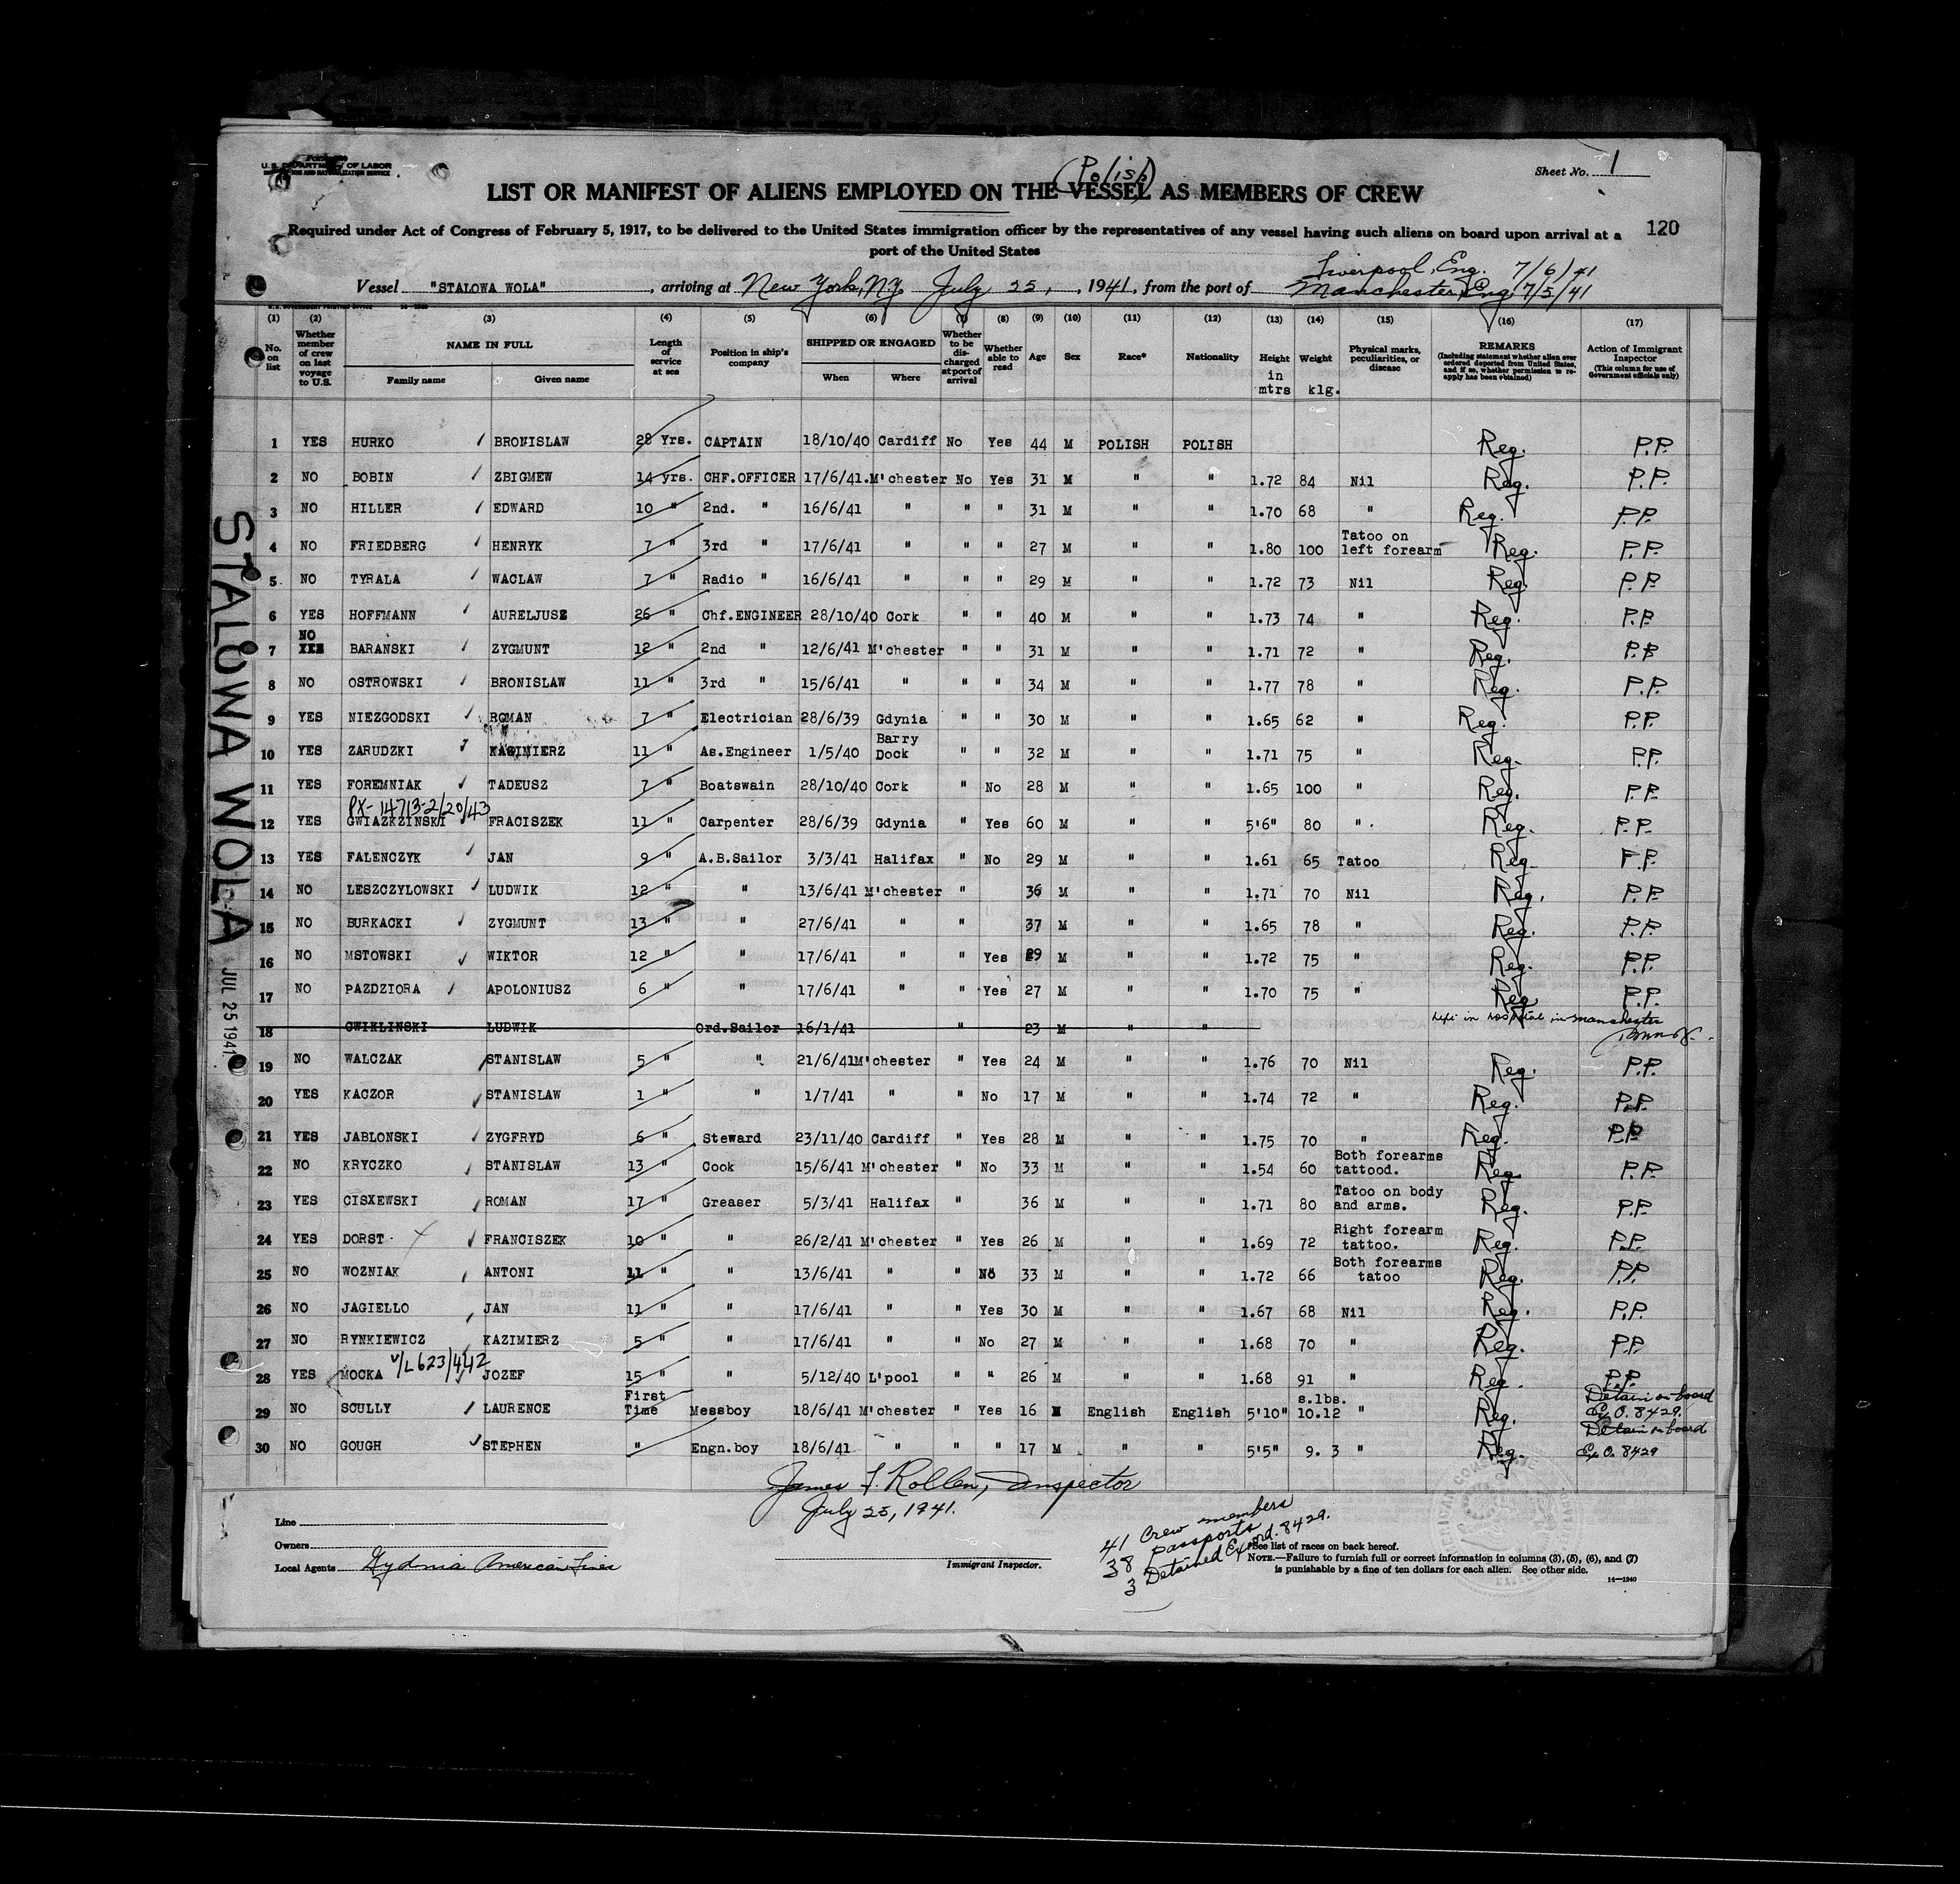 U.S. DEPARTMENT OF LABOR
IMMIGRATION AND NATURALIZATION SERVICE
(Polish)
Sheet No. 1
LIST OR MANIFEST OF ALIENS EMPLOYED ON THE VESSEL AS MEMBERS OF CREW
120
Required under Act of Congress of February 5, 1917, to be delivered to the United States immigration officer by the representatives of any vessel having such aliens on board upon arrival at a
port of the United States
Liverpool, Eng. 7/6/41
Vessel "STALOWA WOLA", arriving at New York, N.Y. July 25, 1941, from the port of Manchester, Eng. 7/5/41
(1) (2) (3) (4) (5) (6) (7) (8) (9) (10) (11) (12) (13) (14) (15) (16) (17)
No. on list
Whether member of crew on last voyage to U.S.
NAME IN FULL
Family name Given name
Length of service at sea
Position in ship's company
SHIPPED OR ENGAGED
When Where
Whether to be discharged at port of arrival
Whether able to read
Age
Sex
Race*
Nationality
Height in mtrs
Weight klg.
Physical marks, peculiarities, or disease
REMARKS
(Including statement whether alien ever ordered deported from United States, and if so, whether permission to reapply has been obtained)
Action of Immigrant Inspector
(This column for use of Government officials only)
1 YES HURKO BRONISLAW 28 Yrs. CAPTAIN 18/10/40 Cardiff No Yes 44 M POLISH POLISH Reg. P.P.
2 NO BOBIN ZBIGMEW 14 yrs. CHF.OFFICER 17/6/41. M'chester No Yes 31 M " " 1.72 84 Nil Reg. P.P.
3 NO HILLER EDWARD 10 " 2nd. " 16/6/41 " " " 31 M " " 1.70 68 " Reg. P.P.
4 NO FRIEDBERG HENRYK 7 " 3rd " 17/6/41 " " " 27 M " " 1.80 100 Tatoo on left forearm Reg. P.P.
5 NO TYRALA WACLAW 7 " Radio " 16/6/41 " " " 29 M " " 1.72 73 Nil Reg. P.P.
6 YES HOFFMANN AURELJUSZ 26 " Chf.ENGINEER 28/10/40 Cork " " 40 M " " 1.73 74 " Reg. P.P.
7 NO YES BARANSKI ZYGMUNT 12 " 2nd " 12/6/41 M'chester " " 31 M " " 1.71 72 " Reg. P.P.
8 NO OSTROWSKI BRONISLAW 11 " 3rd " 15/6/41 " " " 34 M " " 1.77 78 " Reg. P.P.
9 YES NIEZGODSKI ROMAN 7 " Electrician 28/6/39 Gdynia " " 30 M " " 1.65 62 " Reg. P.P.
10 YES ZARUDZKI KAZIMIERZ 11 " As.Engineer 1/5/40 Barry Dock " " 32 M " " 1.71 75 " Reg. P.P.
11 YES FOREMNIAK TADEUSZ 7 " Boatswain 28/10/40 Cork " No 28 M " " 1.65 100 " Reg. P.P.
PX-14713-2/20/43
12 YES GWIAZKZINSKI FRACISZEK 11 " Carpenter 28/6/39 Gdynia " Yes 60 M " " 5'6" 80 " Reg. P.P.
13 YES FALENCZYK JAN 9 " A.B.Sailor 3/3/41 Halifax " No 29 M " " 1.61 65 Tatoo Reg. P.P.
14 NO LESZCZYLOWSKI LUDWIK 12 " " 13/6/41 M'chester " 36 M " " 1.71 70 Nil Reg. P.P.
15 NO BURKACKI ZYGMUNT 13 " " 27/6/41 " " 37 M " " 1.65 78 " Reg. P.P.
16 NO MSTOWSKI WIKTOR 12 " " 17/6/41 " " Yes 29 M " " 1.72 75 " Reg. P.P.
17 NO PAZDZIORA APOLONIUSZ 6 " " 17/6/41 " " Yes 27 M " " 1.70 75 " Reg P.P.
18 CWIKLINSKI LUDWIK Ord.Sailor 16/1/41 " 23 M " " Left in hospital in Manchester
19 NO WALCZAK STANISLAW 5 " " 21/6/41 M'chester " Yes 24 M " " 1.76 70 Nil Reg. P.P.
20 YES KACZOR STANISLAW 1 " " 1/7/41 " " No 17 M " " 1.74 72 " Reg. P.P.
21 YES JABLONSKI ZYGFRYD 6 " Steward 23/11/40 Cardiff " Yes 28 M " " 1.75 70 " Reg. P.P.
22 NO KRYCZKO STANISLAW 13 " Cook 15/6/41 M'chester " No 33 M " " 1.54 60 Both forearms tattood. Reg P.P.
23 YES CISXEWSKI ROMAN 17 " Greaser 5/3/41 Halifax " 36 M " " 1.71 80 Tatoo on body and arms. Reg. P.P.
24 YES DORST FRANCISZEK 10 " " 26/2/41 M'chester " Yes 26 M " " 1.69 72 Right forearm tattoo. Reg. P.P.
25 NO WOZNIAK ANTONI 11 " " 13/6/41 " " No 33 M " " 1.72 66 Both forearms tatoo Reg. P.P.
26 NO JAGIELLO JAN 11 " " 17/6/41 " " Yes 30 M " " 1.67 68 Nil Reg. P.P.
27 NO RYNKIEWICZ KAZIMIERZ 5 " " 17/6/41 " " No 27 M " " 1.68 70 " Reg. P.P.
V/L 623/442
28 YES MOCKA JOZEF 15 " " 5/12/40 L'pool " " 26 M " " 1.68 91 " Reg. P.P.
29 NO SCULLY LAURENCE First Time Messboy 18/6/41 M'chester " Yes 16 M English English 5'10" s.lbs. 10.12 " Reg. Detain on board Ex. O. 8429
30 NO GOUGH STEPHEN " Engn.boy 18/6/41 " " " 17 M " " 5'5" 9. 3 " Reg. Detain on board Ex. O. 8429
STALOWA WOLA
JUL 25 1941
James F. Rollen, Inspector
July 25, 1941.
Line
Owners
Local Agents Gydnia American Lines
Immigrant Inspector.
41 Crew members
38 passports
3 Detained Ex. ord. 8429.
*See list of races on back hereof.
NOTE.—Failure to furnish full or correct information in columns (3), (5), (6), and (7)
is punishable by a fine of ten dollars for each alien. See other side.
14—1240